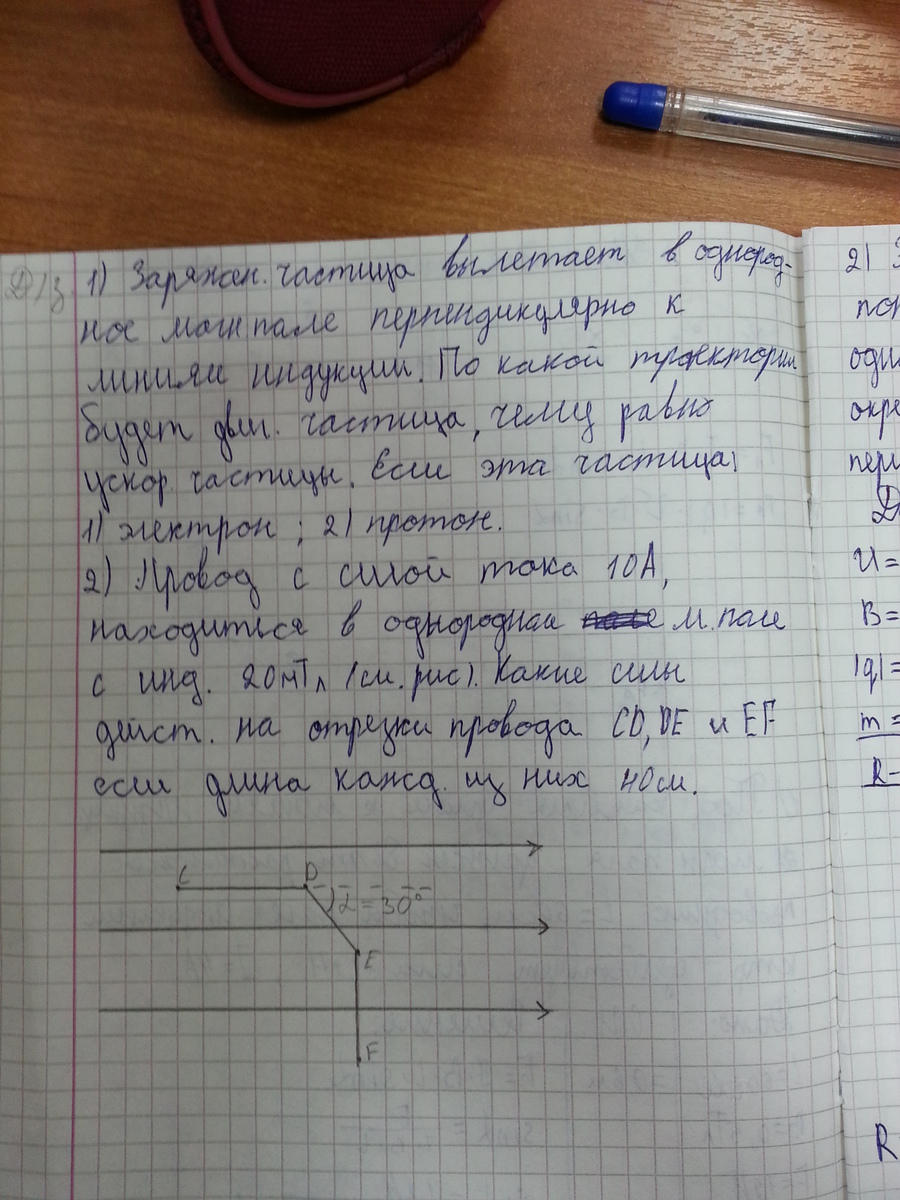 Д/з. 1) Заряжен. частица вылетает в однород-
ное магн поле перпендикулярно к
линиям индукции. По какой троектории
будет двиг. частица, чему равно
ускор. частицы. Если эта частица:
1) электрон ; 2) протон.
2) Провод с силой тока 10А,
находиться в однородном м. поле
с инд. 20мТл (см. рис). Какие силы
дейст. на отрезки провода CD, DE и EF
если длина кажд. из них 40см.
C D
α = 30°
E
F
2)
U=
B=
|q|=
m=
R-
R